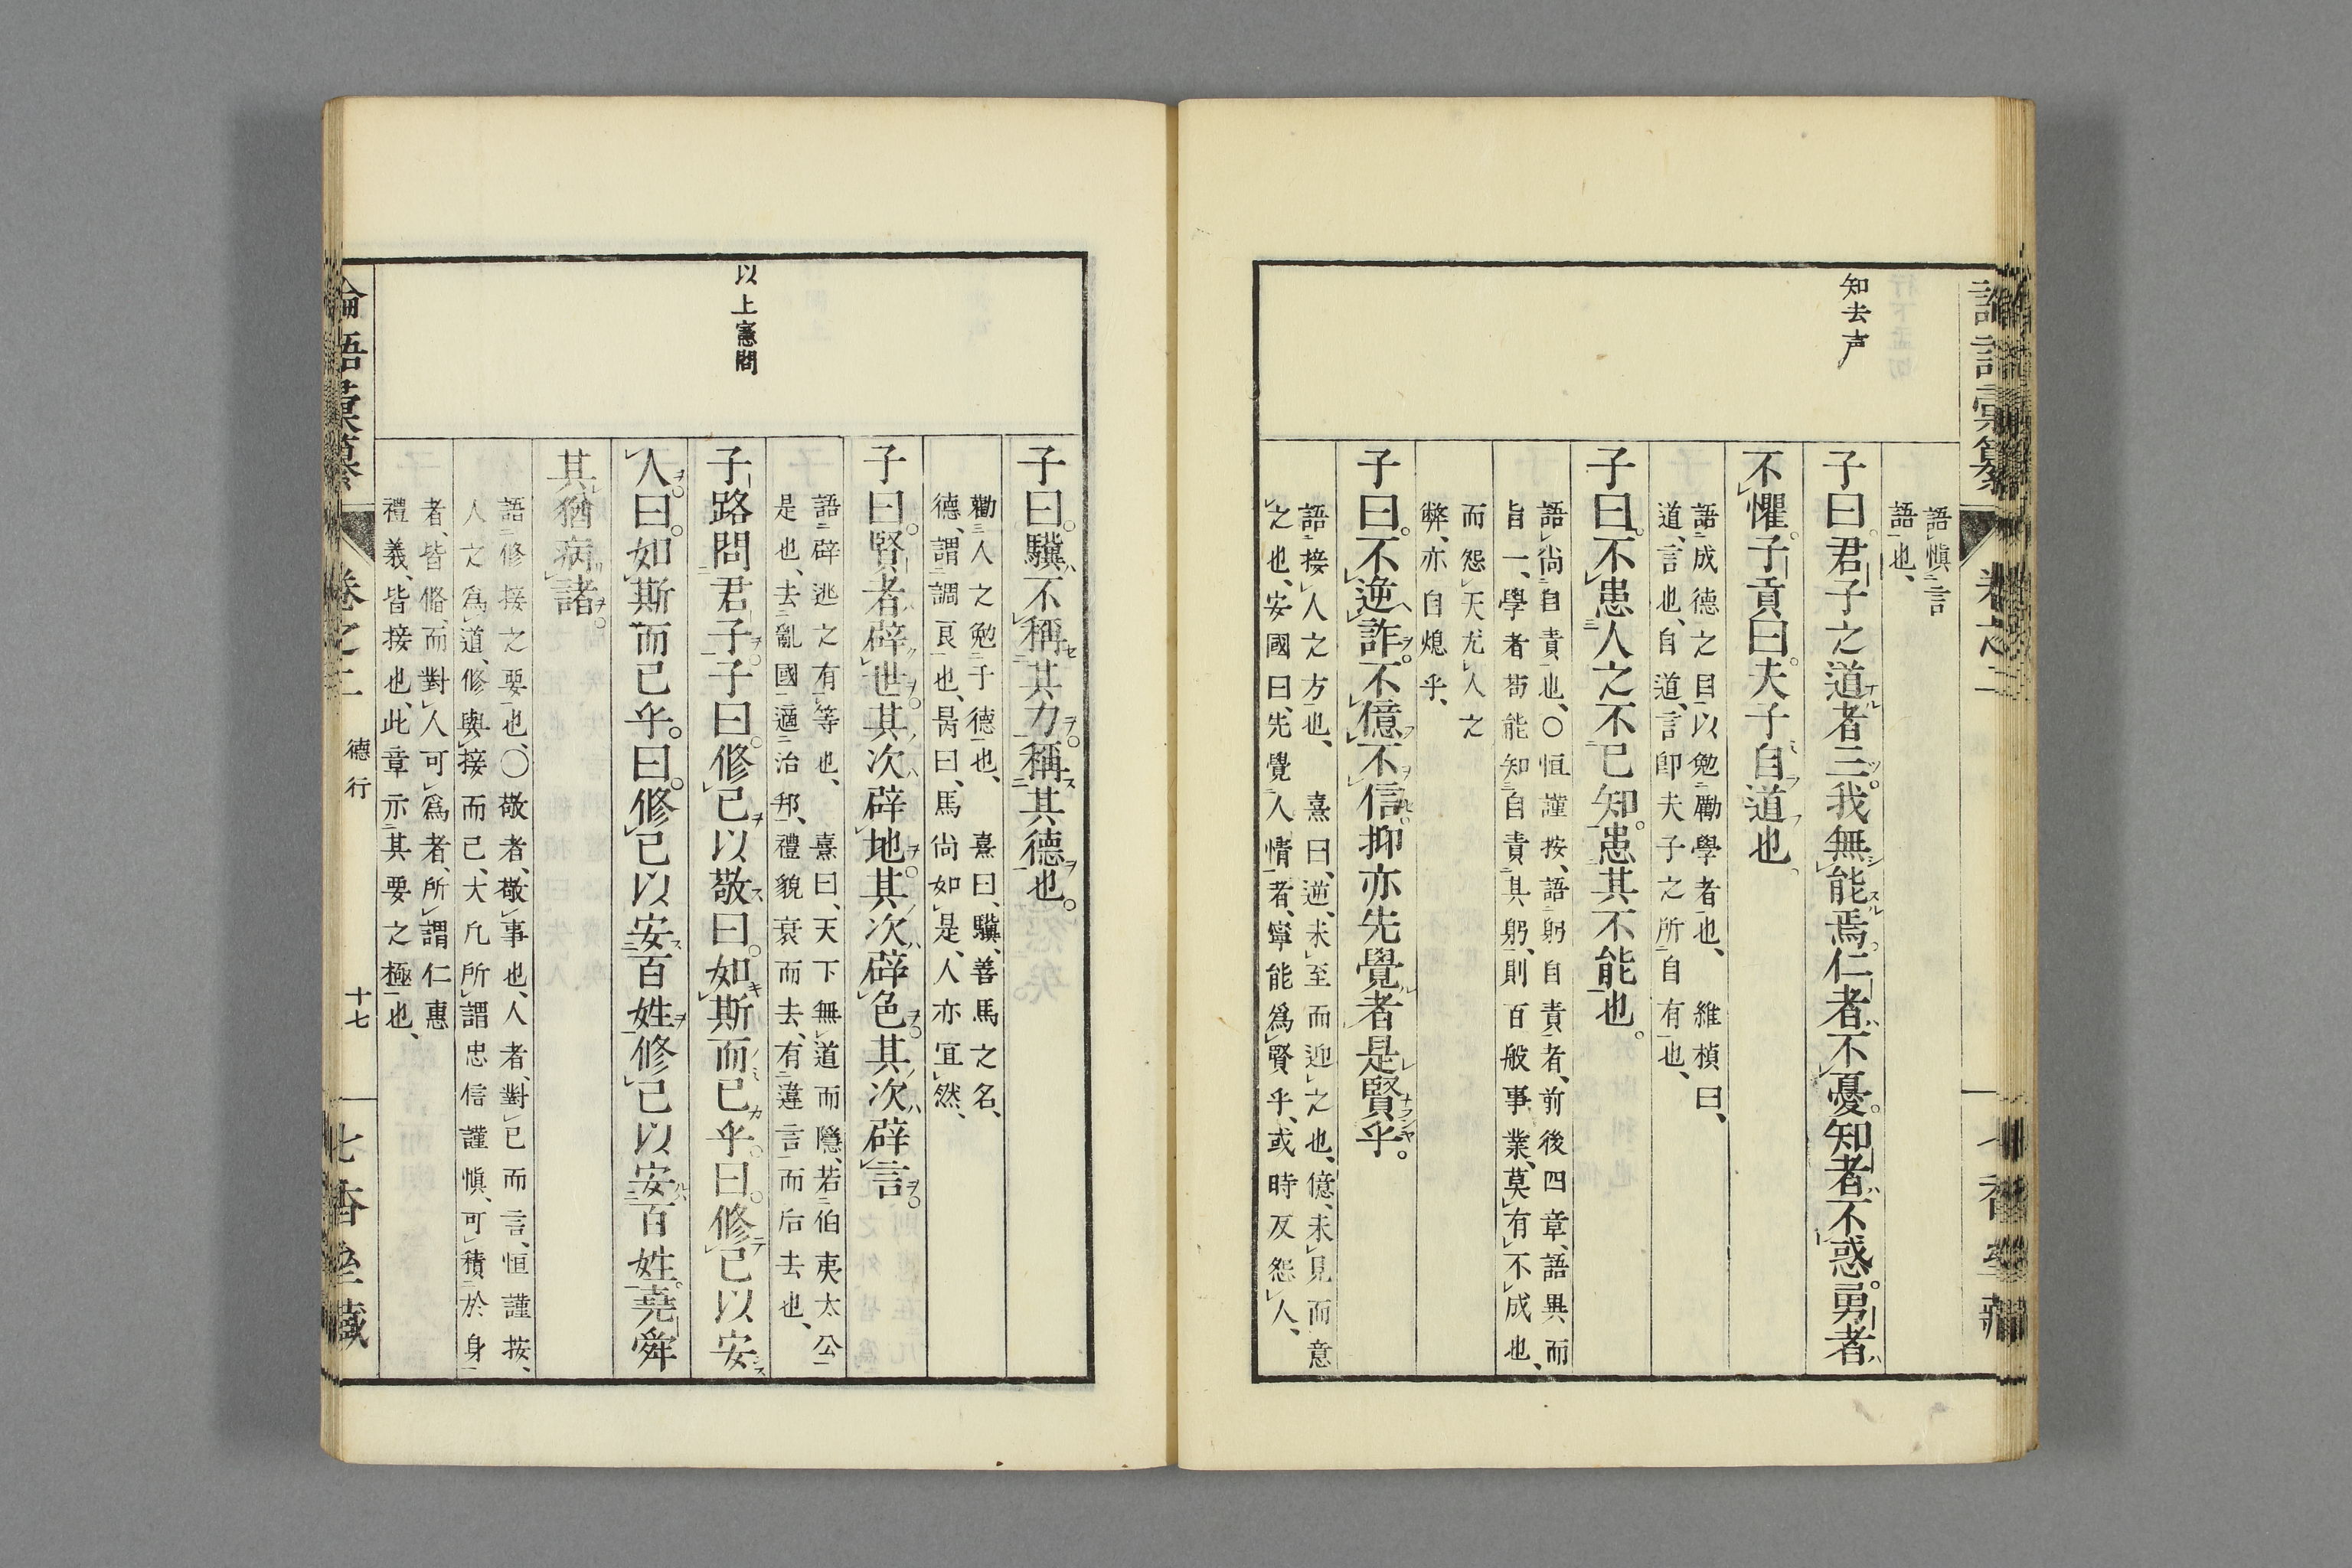 知去声
語愼言
語也、
子曰。君子之道者三。我無能焉。仁者不憂。知者不惑。勇者
不懼。子貢曰。夫子自道也、
語成德之目以勉勵學者也、　維楨曰、
道、言也、自道、言卽夫子之所自有也、
子曰。不患人之不已知。患其不能也。
語尙自責也、〇恒謹按、語躬自責者、前後四章、語異而
旨一、學者苟能知自責其躬、則百般事業、莫有不成也、
而怨天尤人之
弊、亦自熄乎、
子曰。不逆詐。不億不信。抑亦先覺者是賢乎。
語接人之方也、　熹曰、逆、未至而迎之也、億、未見而意
之也、安國曰、先覺人情者、寧能爲賢乎、或時反怨人、
以上憲問
子曰。驥不稱其力。稱其德也。
勸人之勉于德也、　熹曰、驥、善馬之名、
德、謂調良也、昺曰、馬尙如是、人亦宜然、
子曰。賢者辟世。其次辟地。其次辟色。其次辟言。
語辟逃之有等也、　熹曰、天下無道而隱、若伯夷太公
是也、去亂國適治邦、禮貌衰而去、有違言而后去也、
子路問君子。子曰。修已以敬曰。如斯而已乎。曰。修已以安
人。曰。如斯而已乎。曰。修已以安百姓修已以安百姓。堯舜
其猶病諸。
語修接之要也、〇敬者、敬事也、人者、對已而言、恒謹按、
人之爲道、修與接而已、大凡所謂忠信謹愼、可積於身
者、皆脩、而對人可爲者、所謂仁惠
禮義、皆接也、此章示其要之極也、
論語彙纂　卷之二　德行　十七　七香堂藏